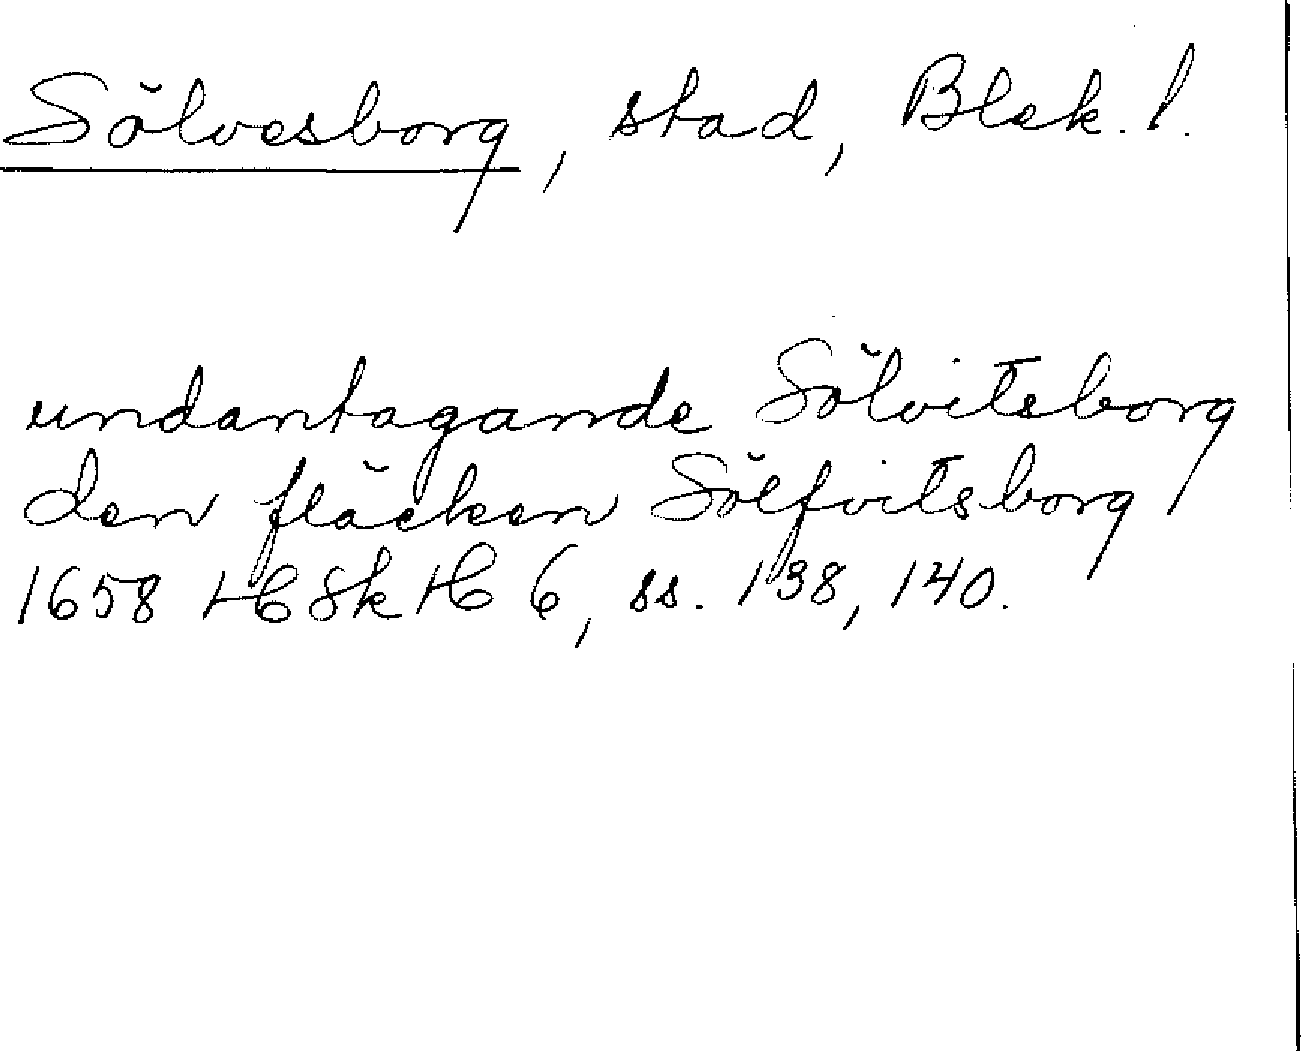 Sölvesborg, stad, Blek. l.
undantagande Sölvitsborg
den fläcken Sölfvitsborg
1658 HSkH 6, ss. 138, 140.